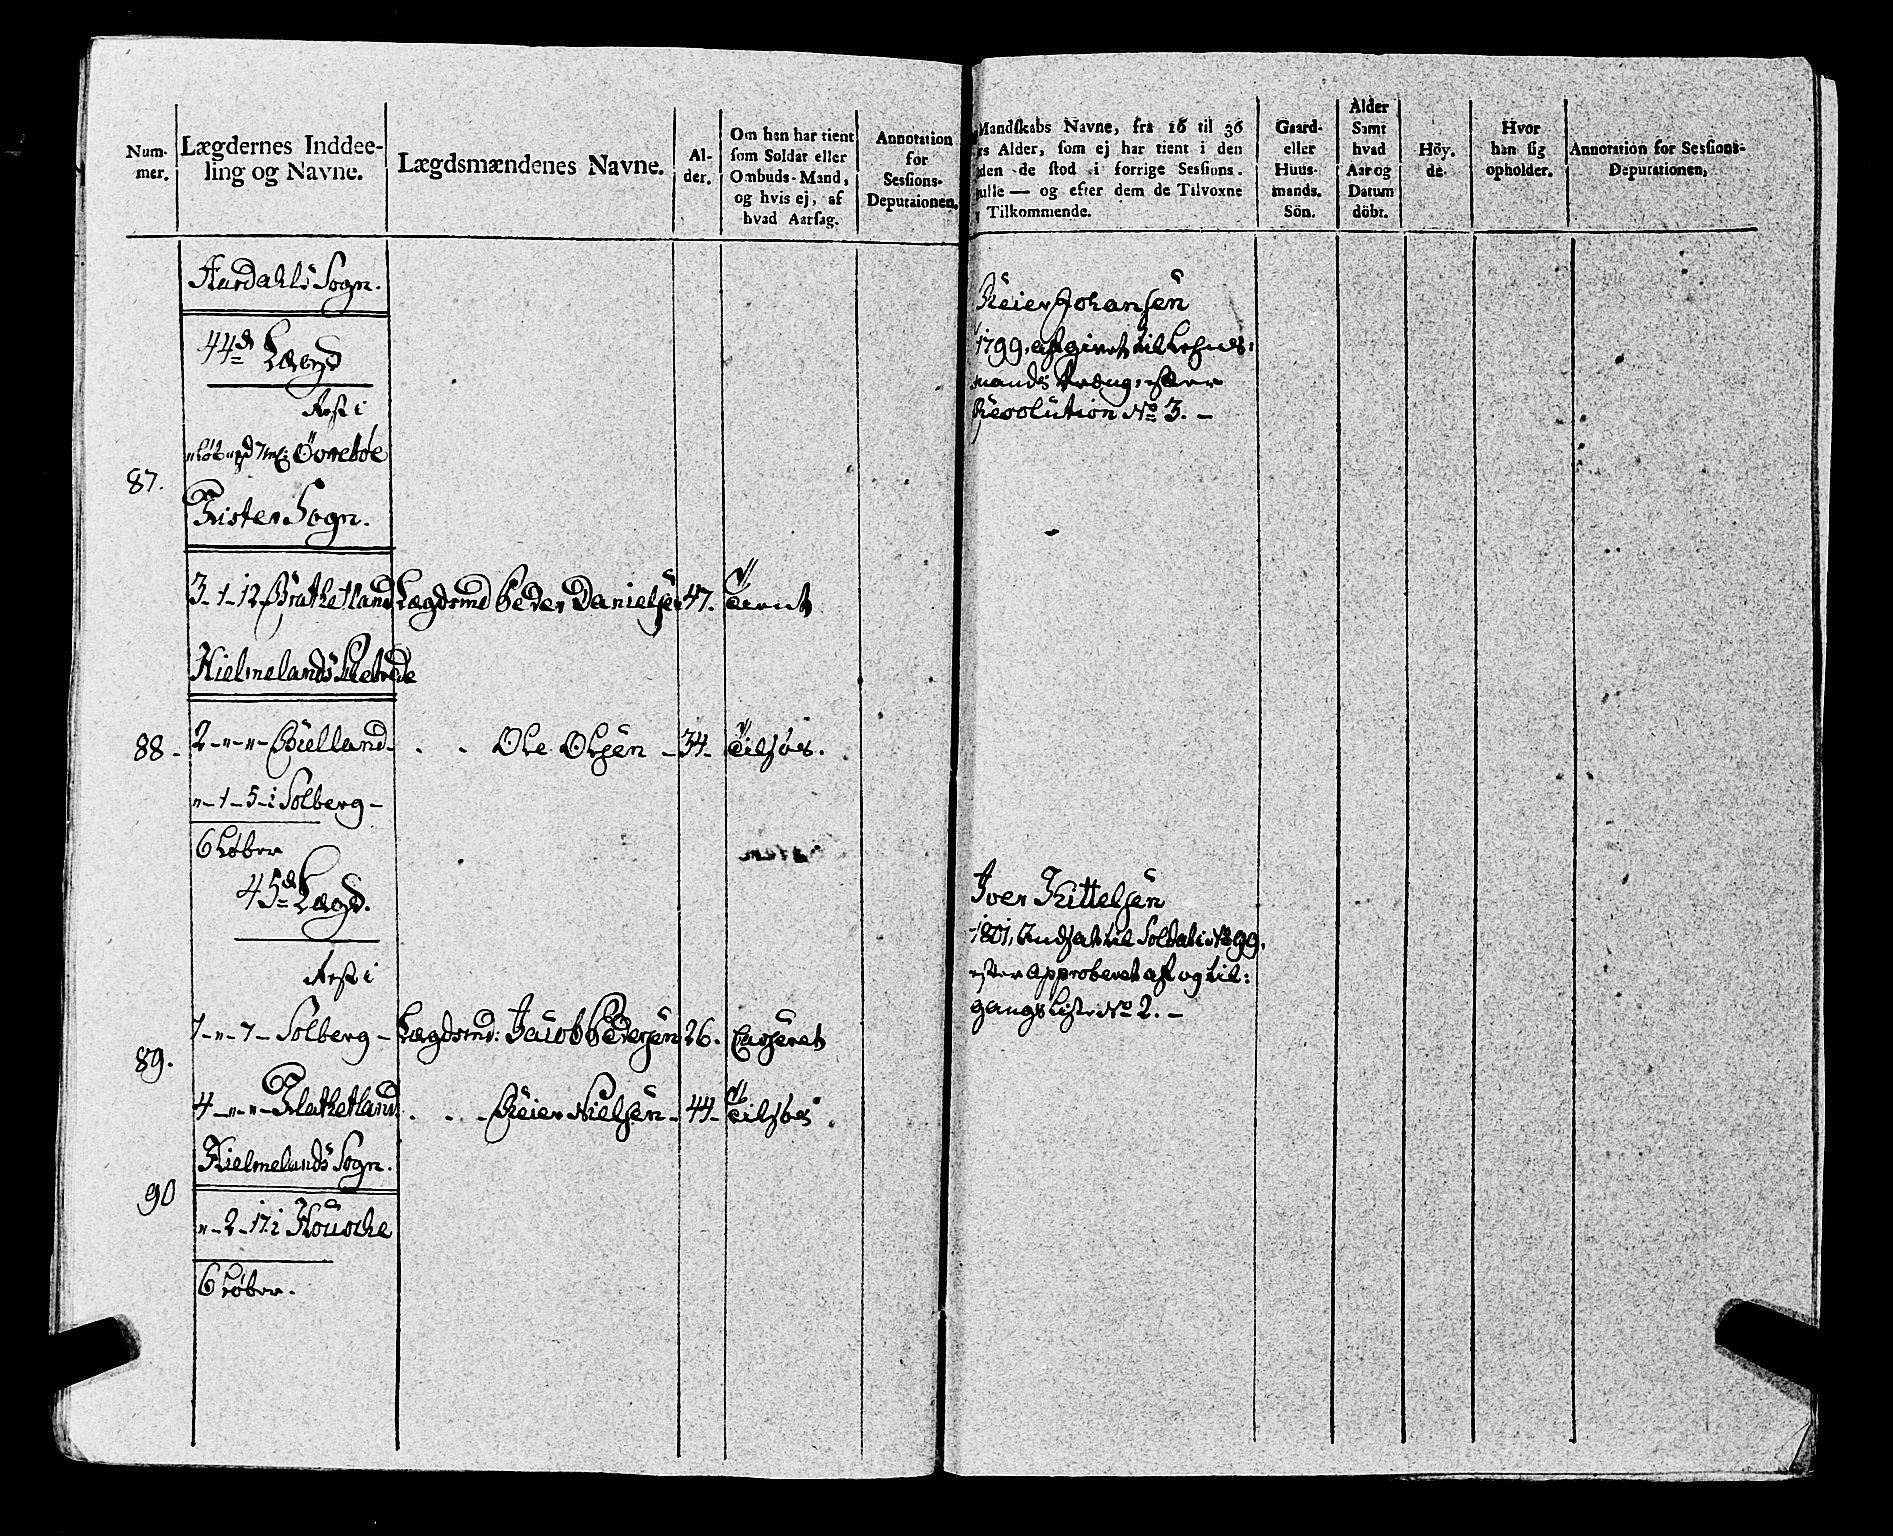 Num-
mer.
Lægdernes Inddee-
ling og Navne.
Lægdsmændenes Navne.
Al-
der.
Om han har tient
som Soldat eller
Ombuds-Mand,
og hvis ej, af
hvad Aarsag.
Annotation
for
Sessions-
Deputaionen.
Aardahls Sogn.
44de Lægd
Rest i
Övrebøe
87.
Fister Sogn.
3-1-12 Brathetland Lægdsmd Peder Danielsen 47. Tient
Hielmelands
88- 2-"-"- - - Ole Olsen - 34- Tilsøes.
"-1-5-i Solberg-
6 Løber
45de Lægd.
Rest i
1-"-7- Solberg - Lægdsmd: Jacob Pedersen 26. Casseret
89.
4-"-"- - - Reier Nielsen - 44- Tilsøes
Hielmelands Sogn.
90
"-2-17 i Houske
6 Løber.
Mandskabs Navne, fra 16 til 36
rs Alder, som ej har tient i den
den de stod i forrige Sessions-
ulle — og efter dem de Tilvoxne
Tilkommende.
Gaard-
eller
Huus-
mands.
Sön.
Alder
Samt
hvad
Aar og
Datum
döbt.
Höy.
de.
Hvor
han sig
opholder.
Annotation for Sessions-
Deputationen,
Reier Johansen
1799, afgivet til Lehns:
mands Dræng, efter
Resolution No 3. -
Iver Kittelsen
1801, Indsat til Soldat i No 99.
efter Approberet af og til:
gangs Liste No 2. -